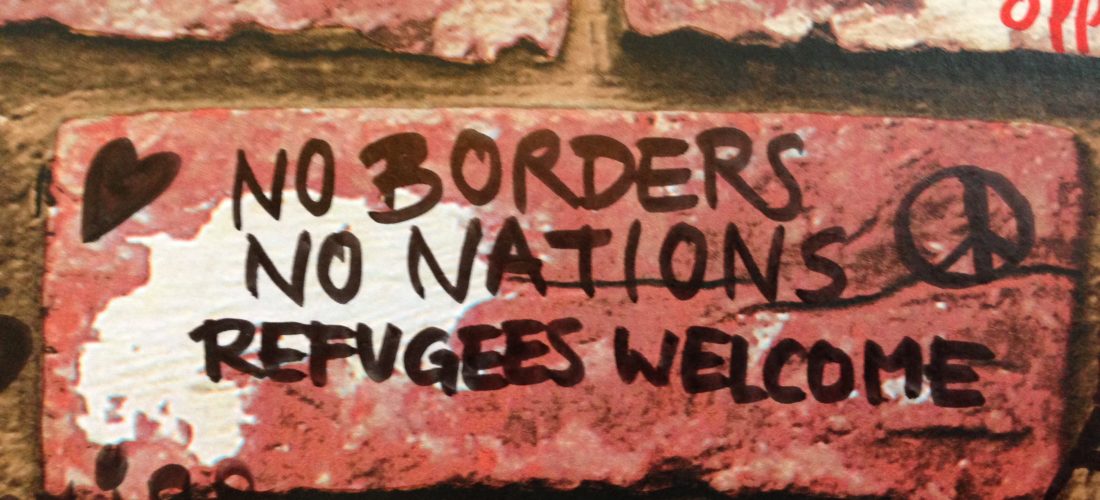 NO BORDERS
NO NATIONS
REFUGEES WELCOME